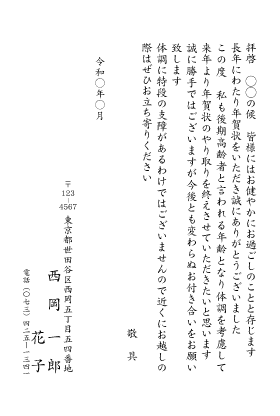 拝啓　〇〇の候　皆様にはお健やかにお過ごしのことと存じます
長年にわたり年賀状をいただき誠にありがとうございました
この度　私も後期高齢者と言われる年齢となり体調を考慮して
来年より年賀状のやり取りを終えさせていただきたいと思います
誠に勝手ではございますが今後とも変わらぬお付き合いをお願い
致します
体調に特段の支障があるわけではございませんので近くにお越しの
際はぜひお立ち寄りください
敬具
令和〇年〇月
〒123-4567
東京都世田谷区西岡五丁目五四番地
西岡一郎
花子
電話（〇七三）四二五ー一三四一